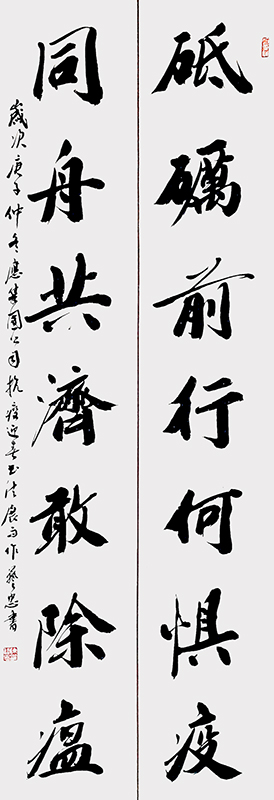 砥礪前行何惧疫
同舟共濟敢除瘟
歲次庚子仲冬應集團公司抗疫迎春书法展而作 藝忠書